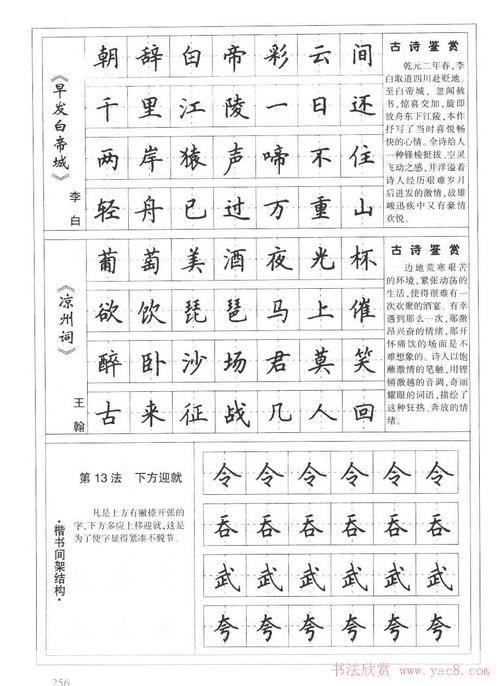 《早发白帝城》
李白
朝辞白帝彩云间
千里江陵一日还
两岸猿声啼不住
轻舟已过万重山
古诗鉴赏
乾元二年春，李
白取道四川赴贬地。
至白帝城，忽闻赦
书，惊喜交加，旋即
放舟东下江陵，本作
抒写了当时喜悦畅
快的心情。全诗给人
一种锋棱挺拔、空灵
飞动之感，并洋溢着
诗人经历艰难岁月
后迸发的激情，故雄
峻迅疾中又有豪情
欢悦。
《凉州词》
王翰
葡萄美酒夜光杯
欲饮琵琶马上催
醉卧沙场君莫笑
古来征战几人回
古诗鉴赏
边地荒寒艰苦
的环境，紧张动荡的
生活，使得很难有一
次欢聚的酒宴。有幸
遇到那么一次，那激
昂兴奋的情绪，那开
怀痛饮的场面是不
难想象的。诗人以饱
蘸激情的笔触，用铿
锵激越的音调，奇丽
耀眼的词语，描绘了
这种狂热、奔放的情
绪。
·楷书间架结构·
第13法 下方迎就
凡是上方有撇捺开张的
字，下方多应上移迎就，这是
为了使字显得紧凑不脱节。
令令令令令令
吞吞吞吞吞吞
武武武武武武
夸夸夸夸夸夸
256
书法欣赏 www.yac8.com